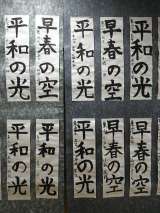 平和の光
早春の空
平和の光
早春の空
平和の光
早春の空
早春の空
平和の光
平和の光
平和の光